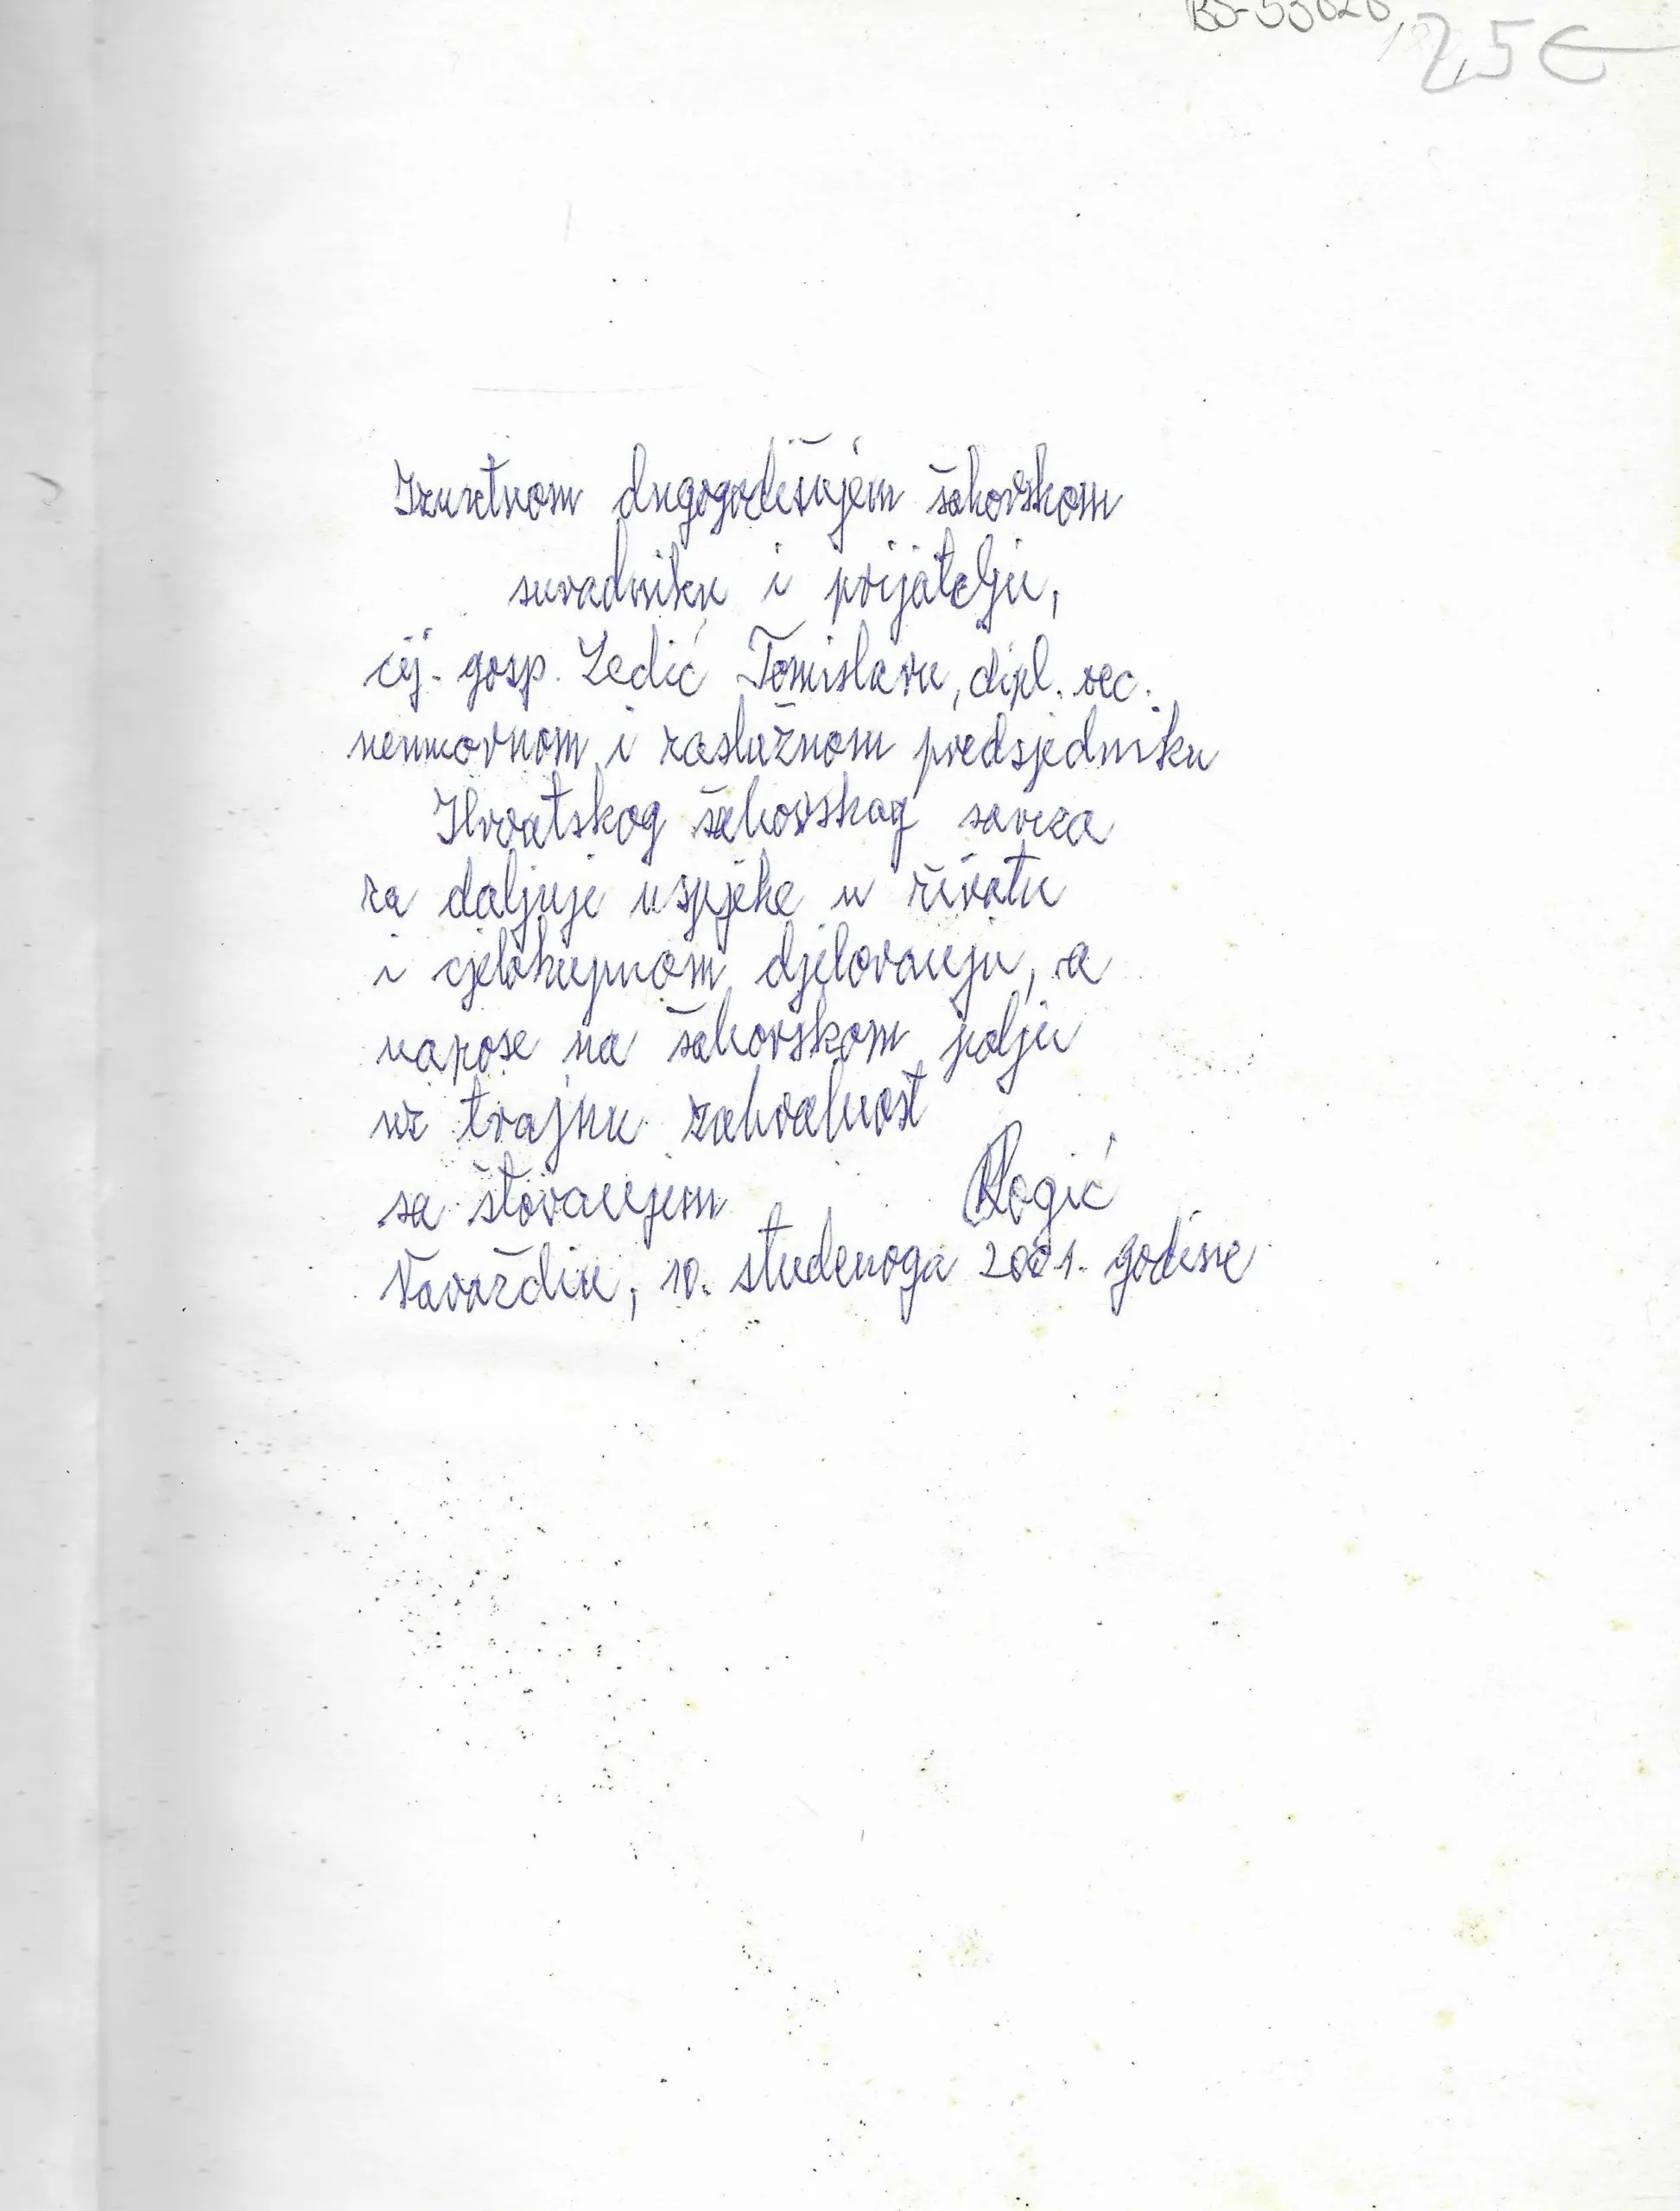 25€
Izuzetnom dugogodišnjem šahovskom
suradniku i prijatelju,
cij. gosp. Ledić Tomislavu, dipl. oec.
neumornom i zaslužnom predsjedniku
Hrvatskog šahovskog saveza
za daljnje uspjehe u životu
i cjelokupnom djelovanju, a
napose na šahovskom polju
uz trajnu zahvalnost
sa štovanjem Rogić
Varaždin, 10. studenoga 2001. godine